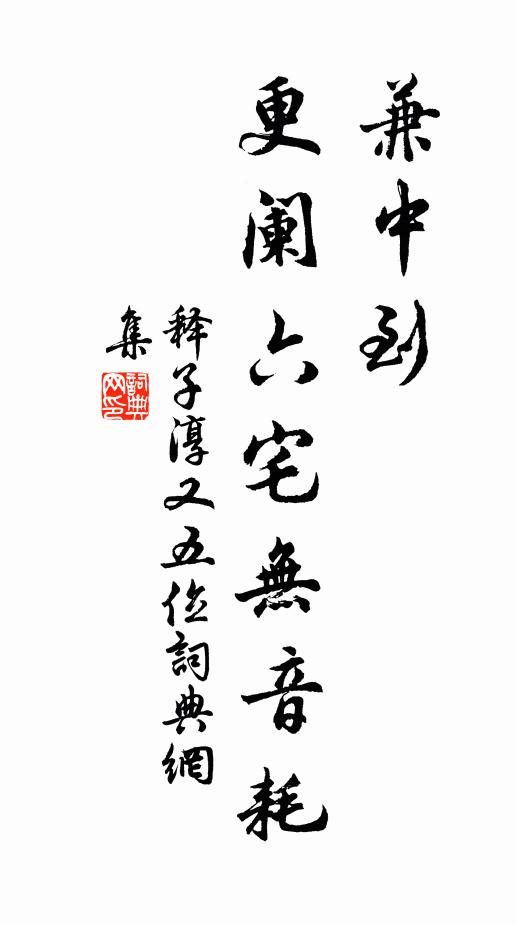 兼中到
更阑六宅無音耗
释子淳又五位詞典網
集
詞典网印